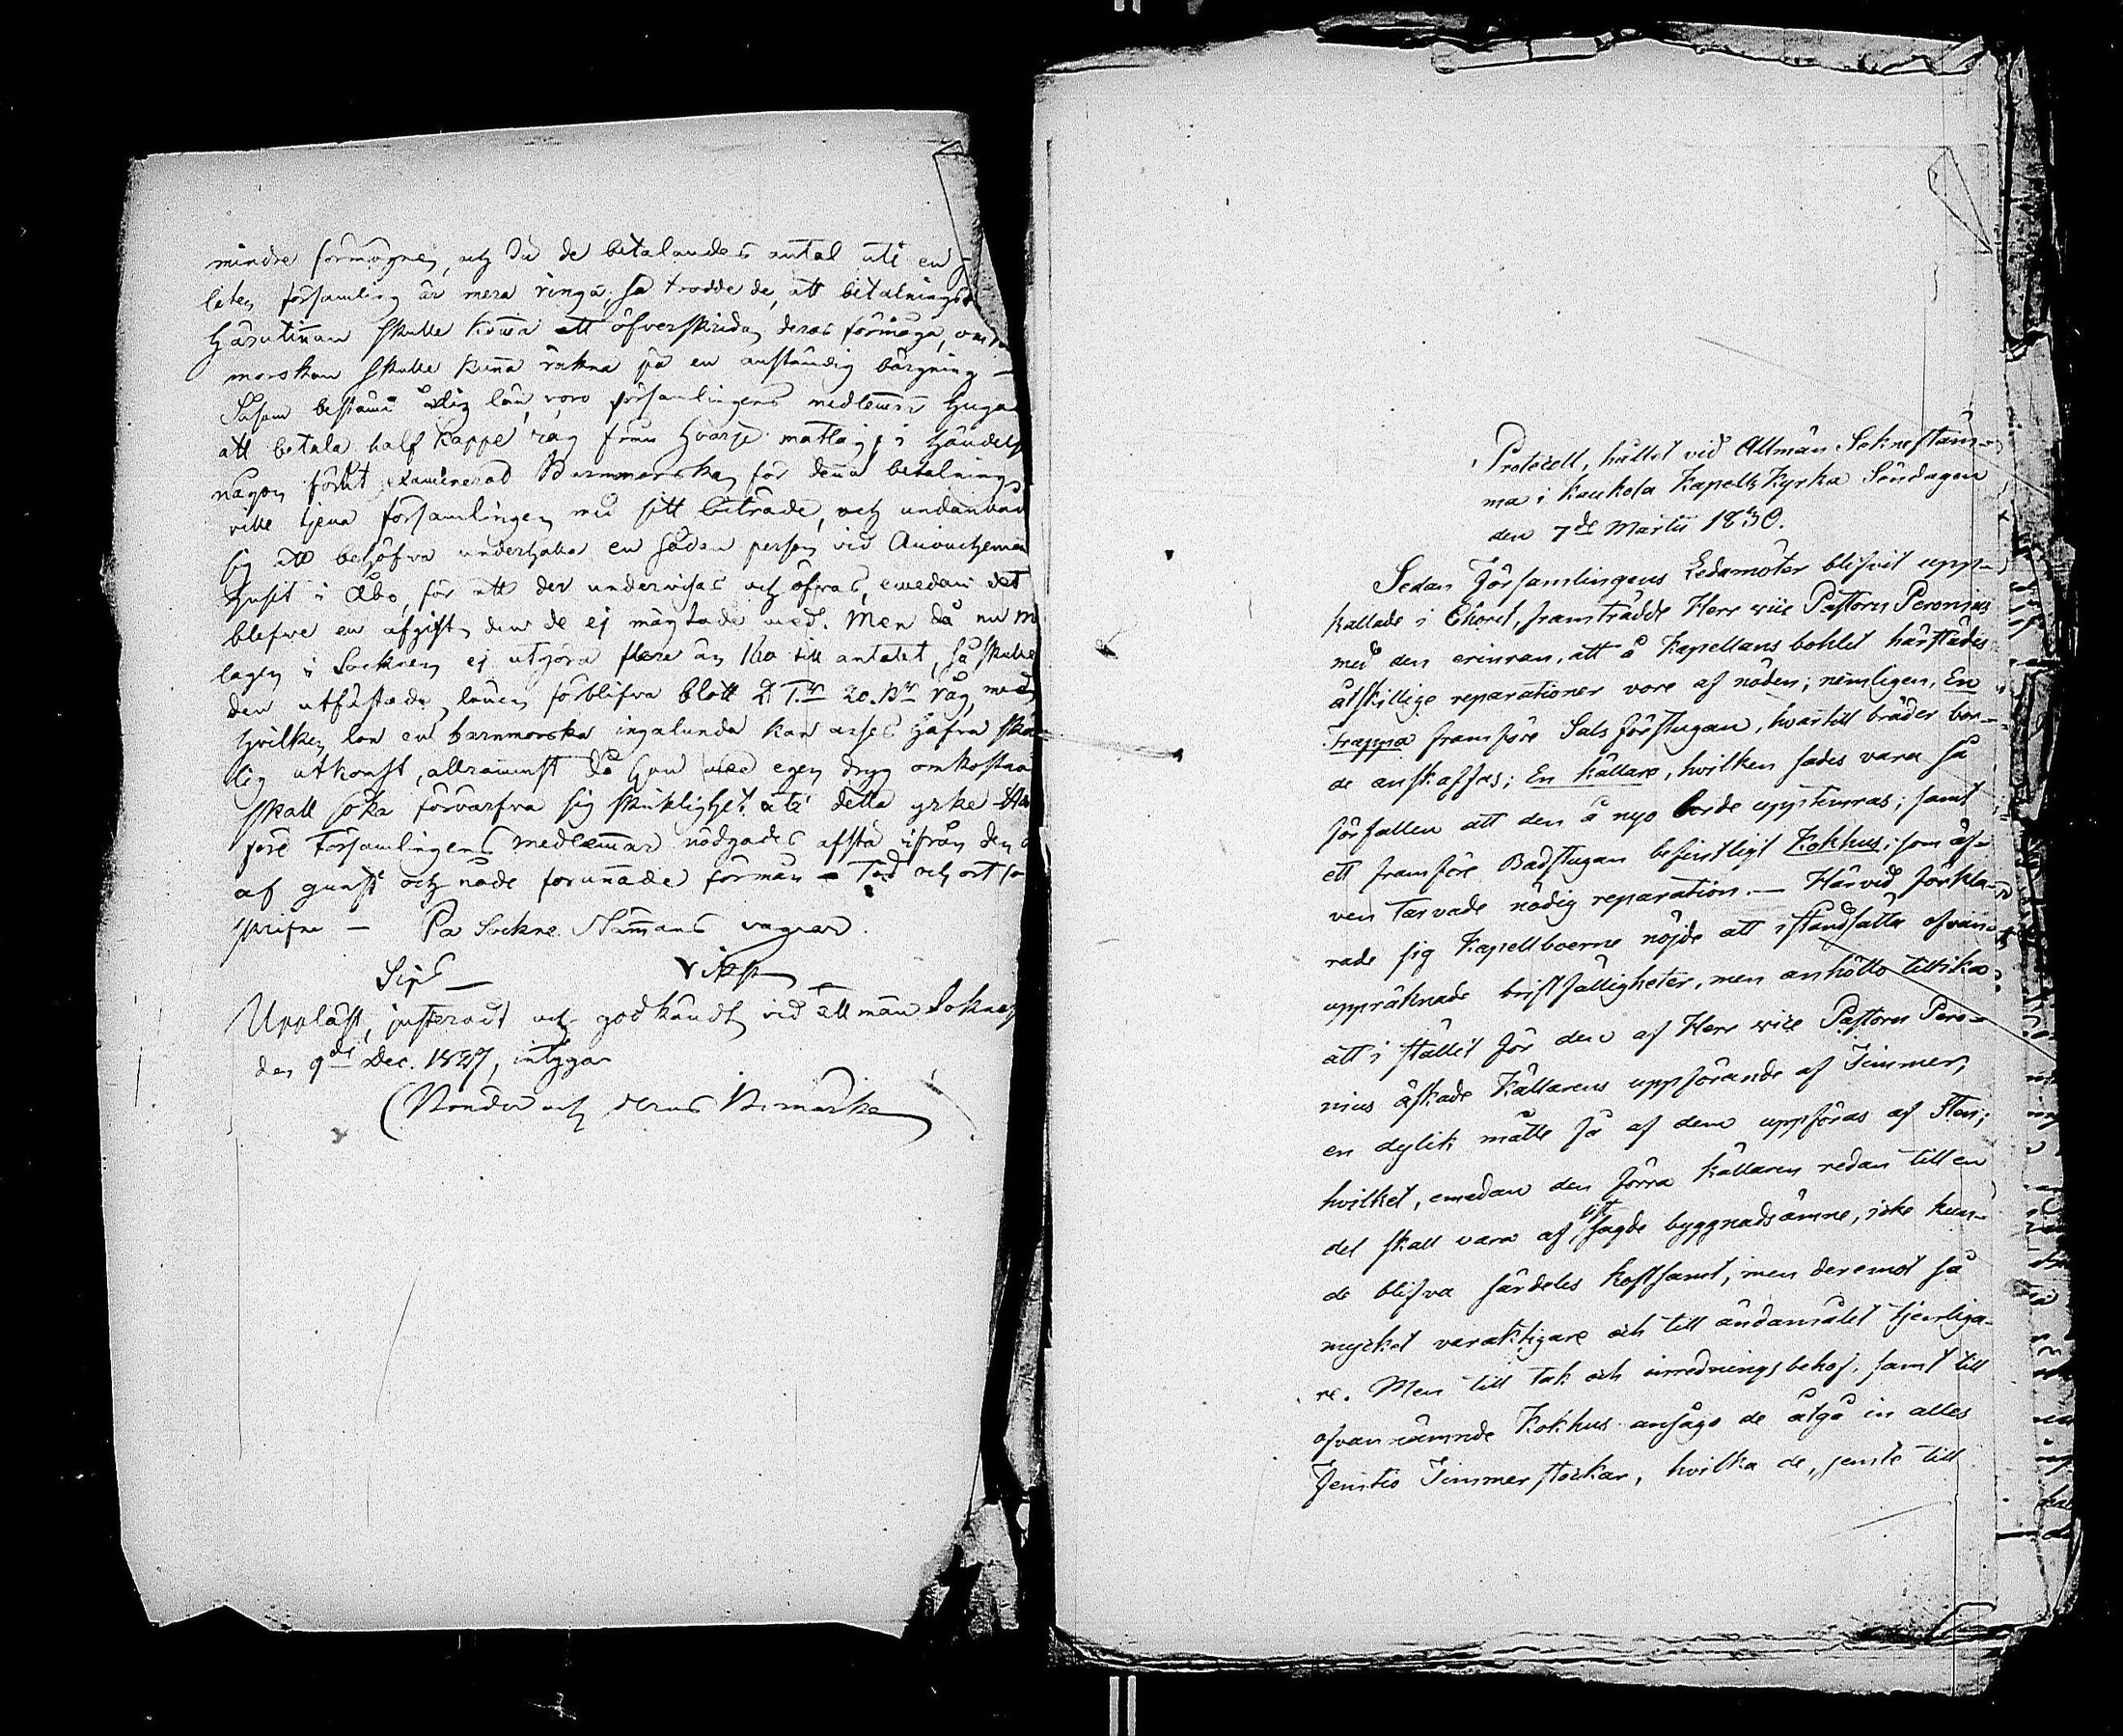 mindre förmögne, och då de betalandes antal uti en
församling är mera ringa, så trodde de, att betalnings
Härutinnan skulle komma att öfverskrida deras förmåga, om
morskan skulle kunna räkna på en anständig bärgning —
Såsom bestämd lön, voro församlingens medlemmar
att betala half kappe råg från hvarje matlag, i händelse
någon förut examinerad Barnmorska för denna betalning
ville tjena församlingen med sitt biträde, och
sig att behöfva underhålla en sådan person vid Accouchements
huset i Åbo, för att der undervisas och öfvas, emedan det
blefve en afgift, den de ej mägtade med. Men då nu
lagen i Socknen ej utgöra flere än 160 till antalet, så skulle
den utfästade lönen förblifva blott 2 T:r 20 K:r råg, med
hvilken lön en barnmorska ingalunda kan anses hafva
lig utkomst, allraminst då hon med egen dryg
skall söka förvärfva sig skicklighet uti detta yrke
före Församlingens medlemmar nödgades afstå ifrån den
af gunst och nåde förunnade förmån — Tid och ort
skrifne — På Sockne Stämmans vägnar.
Uppläst, justeradt och godkändt vid allmän Sokne
den 9de Dec. 1827, intygar
Bönder och deras Bomärke
Protocoll, hållet vid Allmän Soknestäm-
ma i Kaukola Kapells Kyrka Söndagen
den 7de Martii 1830.
Sedan Församlingens Ledamöter blifvit upp-
kallade i Choret, framträdde Herr vice Pastorn Peronius
med den erinran, att å Kapellans bohlet härstädes
åtskillige reparationer vore af nöden; nemligen, En
Trappa framföre Sals förstugan, hvartill bräder bor-
de anskaffas; En källare, hvilken sades vara så
förfallen att den å nyo borde upptimras; samt
ett framföre Badstugan befintligt Kokhus, som äf-
ven tarvade nödig reparation. — Härvid förkla-
rade sig Kapellboerne nöjde att iståndsätta ofvan-
uppräknade bristfälligheter, men anhöllo tillika
att i stället för den af Herr vice Pastorn Pero-
nius äskade Källarens uppförande af Timmer,
en dylik måtte få af dem uppföras af Sten;
hvilket, emedan den förra källaren redan till en
del skall vara af sistsagde byggnadsämne, icke kun-
de blifva särdeles kostsamt, men deremot så
mycket varaktigare och till ändamålet tjenliga-
re. Men till tak och inrednings behof, samt till
ofvannämnde Kokhus ansågo de åtgå in alles
Femtio Timmerstockar, hvilka de, jemte till